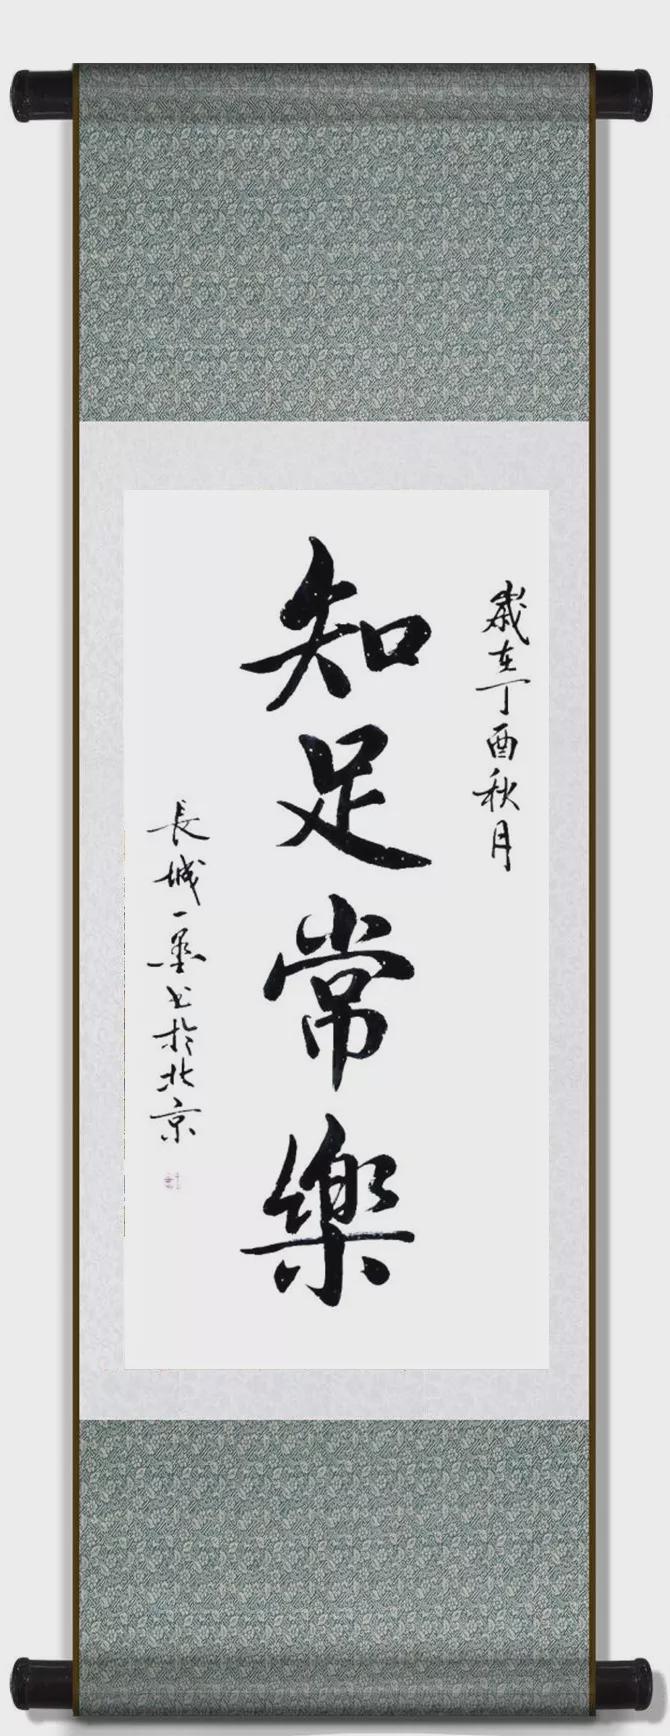 歲在丁酉秋月
知足常樂
長城一墨书於北京